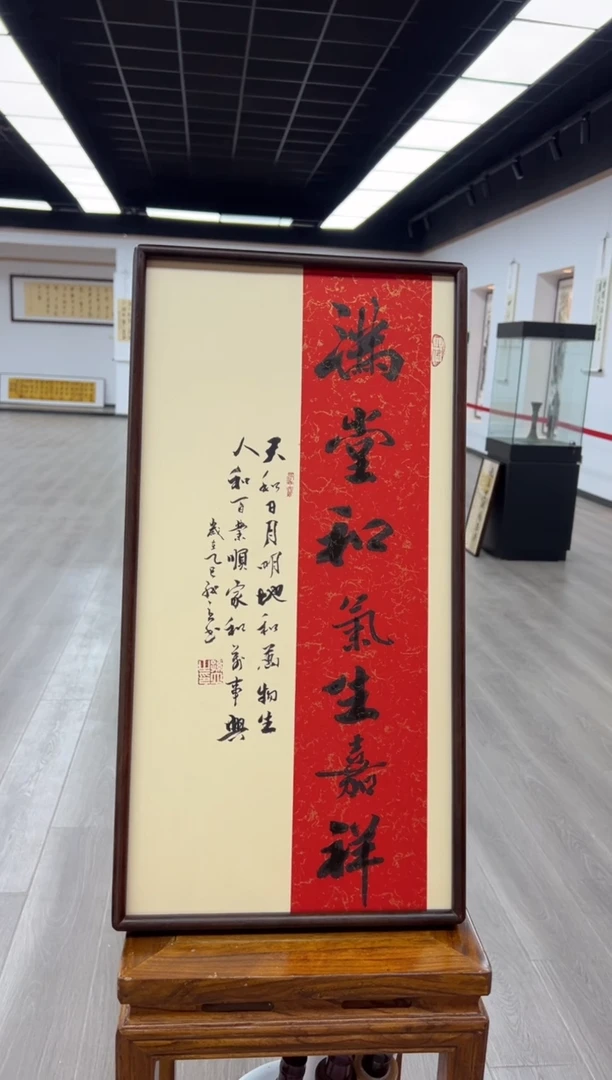 满堂和氣生嘉祥
天和日月明地和萬物生
人和百業順家和萬事興
歲在乙巳